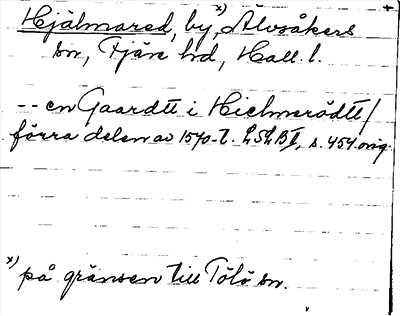 Hjälmared, by, x) Älvsåkers
sn, Fjäre hd, Hall. l.
-- en Gaardtt i Hielmerödtt/
förra delen av 1570-t. LSLB I, s. 454 orig.
x) på gränsen till Tölö sn.